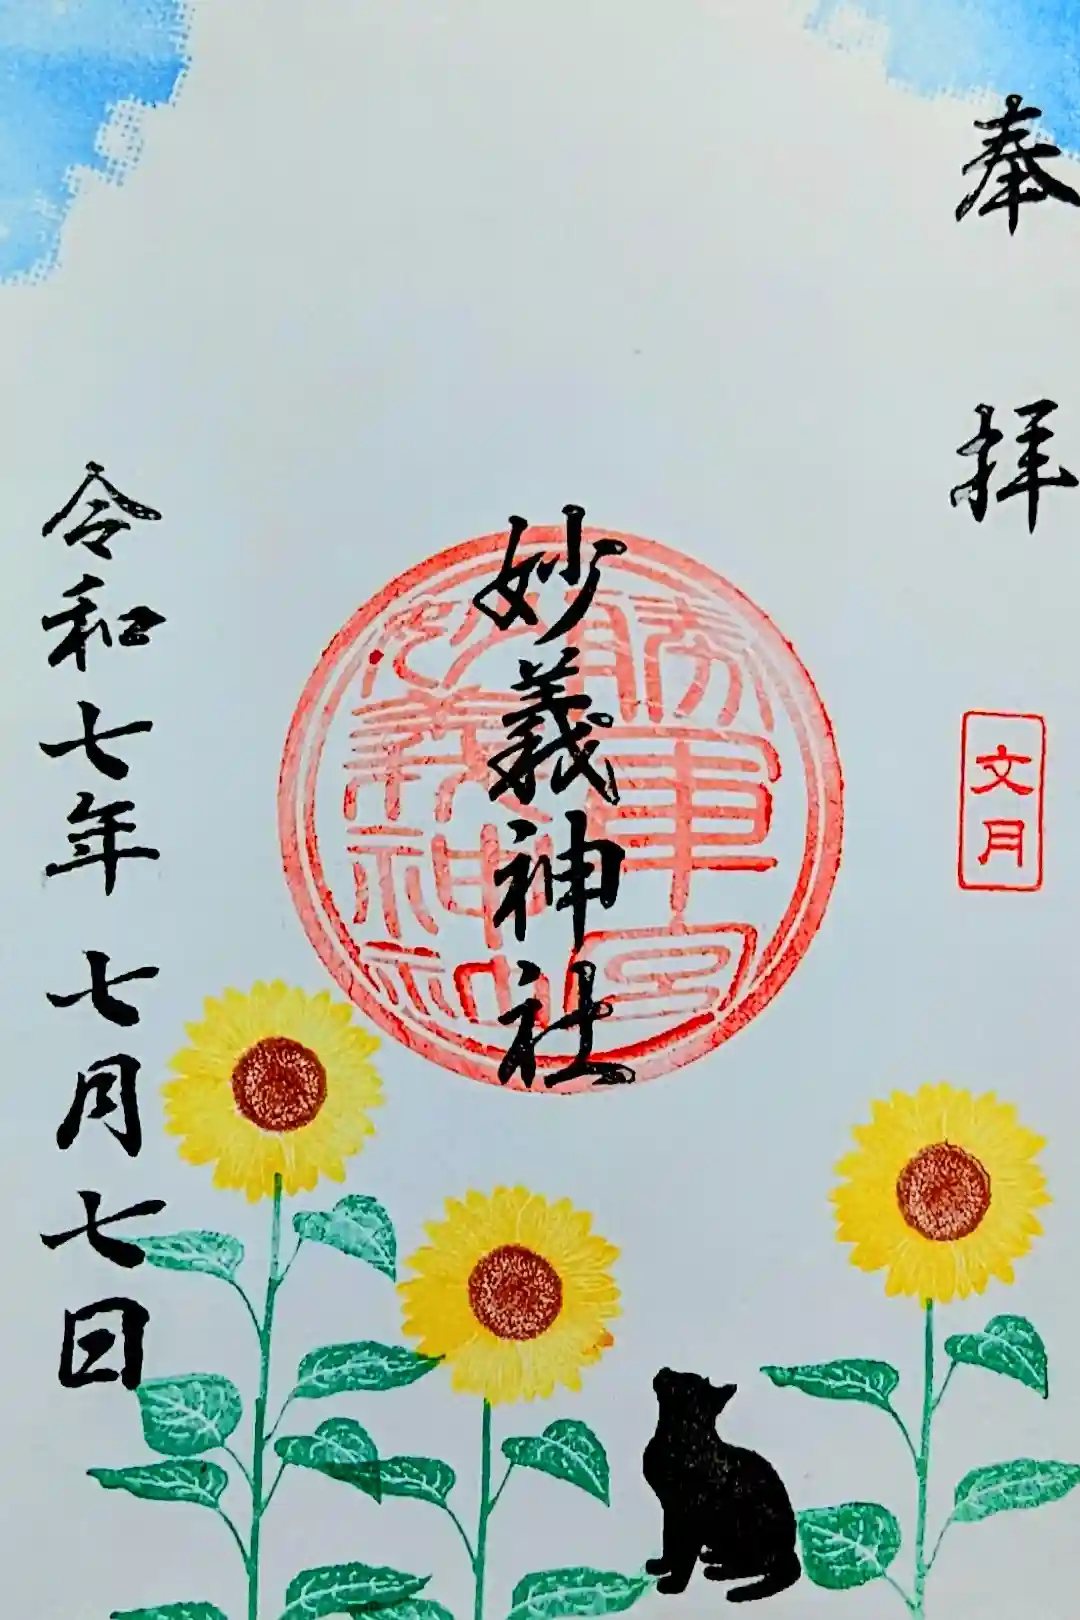 奉拝
文月
勝軍宮
妙義神社
妙義神社
令和七年七月七日